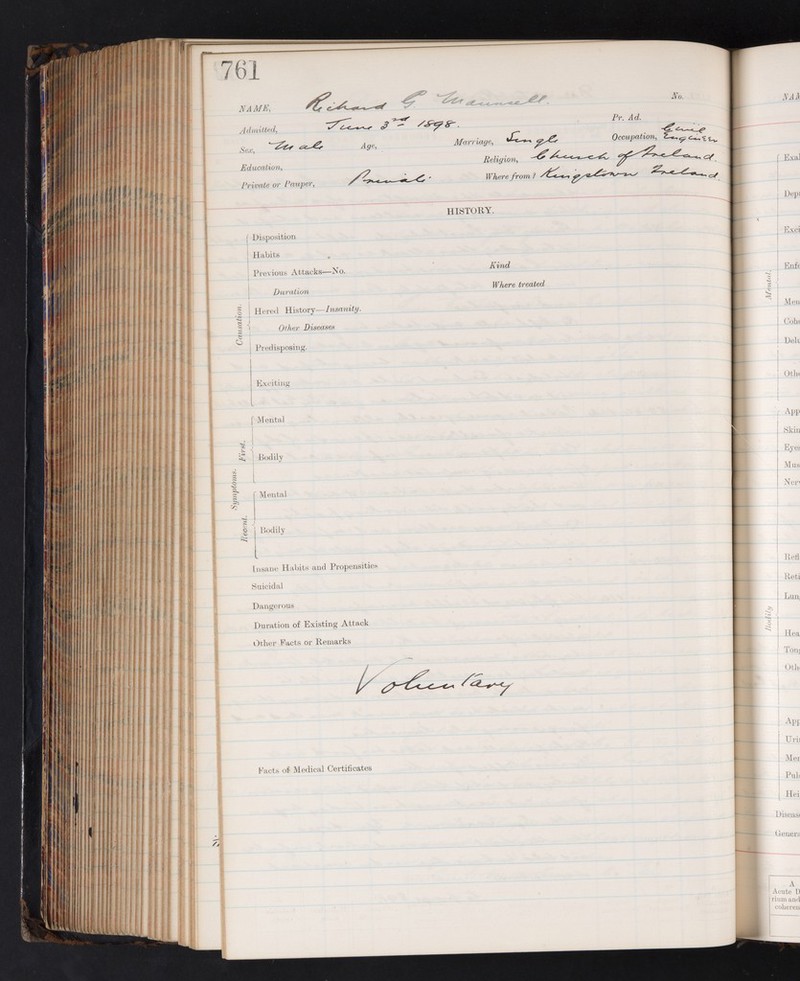 761
NAME, Richard G Maunsell. No.
Admitted, June 3rd 1898. Pr. Ad.
Sex, Male Age, Marriage, Single Occupation, Civil Engineer
Education, Religion, Church of Ireland.
Private or Pauper, Private. Where from? Kingstown Ireland.
HISTORY.
Causation.
Disposition
Habits
Previous Attacks—No. Kind
Duration Where treated
Hered History—Insanity.
Other Diseases
Predisposing.
Exciting
Symptoms.
First.
Mental
Bodily
Recent.
Mental
Bodily
Insane Habits and Propensities
Suicidal
Dangerous
Duration of Existing Attack
Other Facts or Remarks
Voluntary
Facts of Medical Certificates
Mental.
Bodily
A